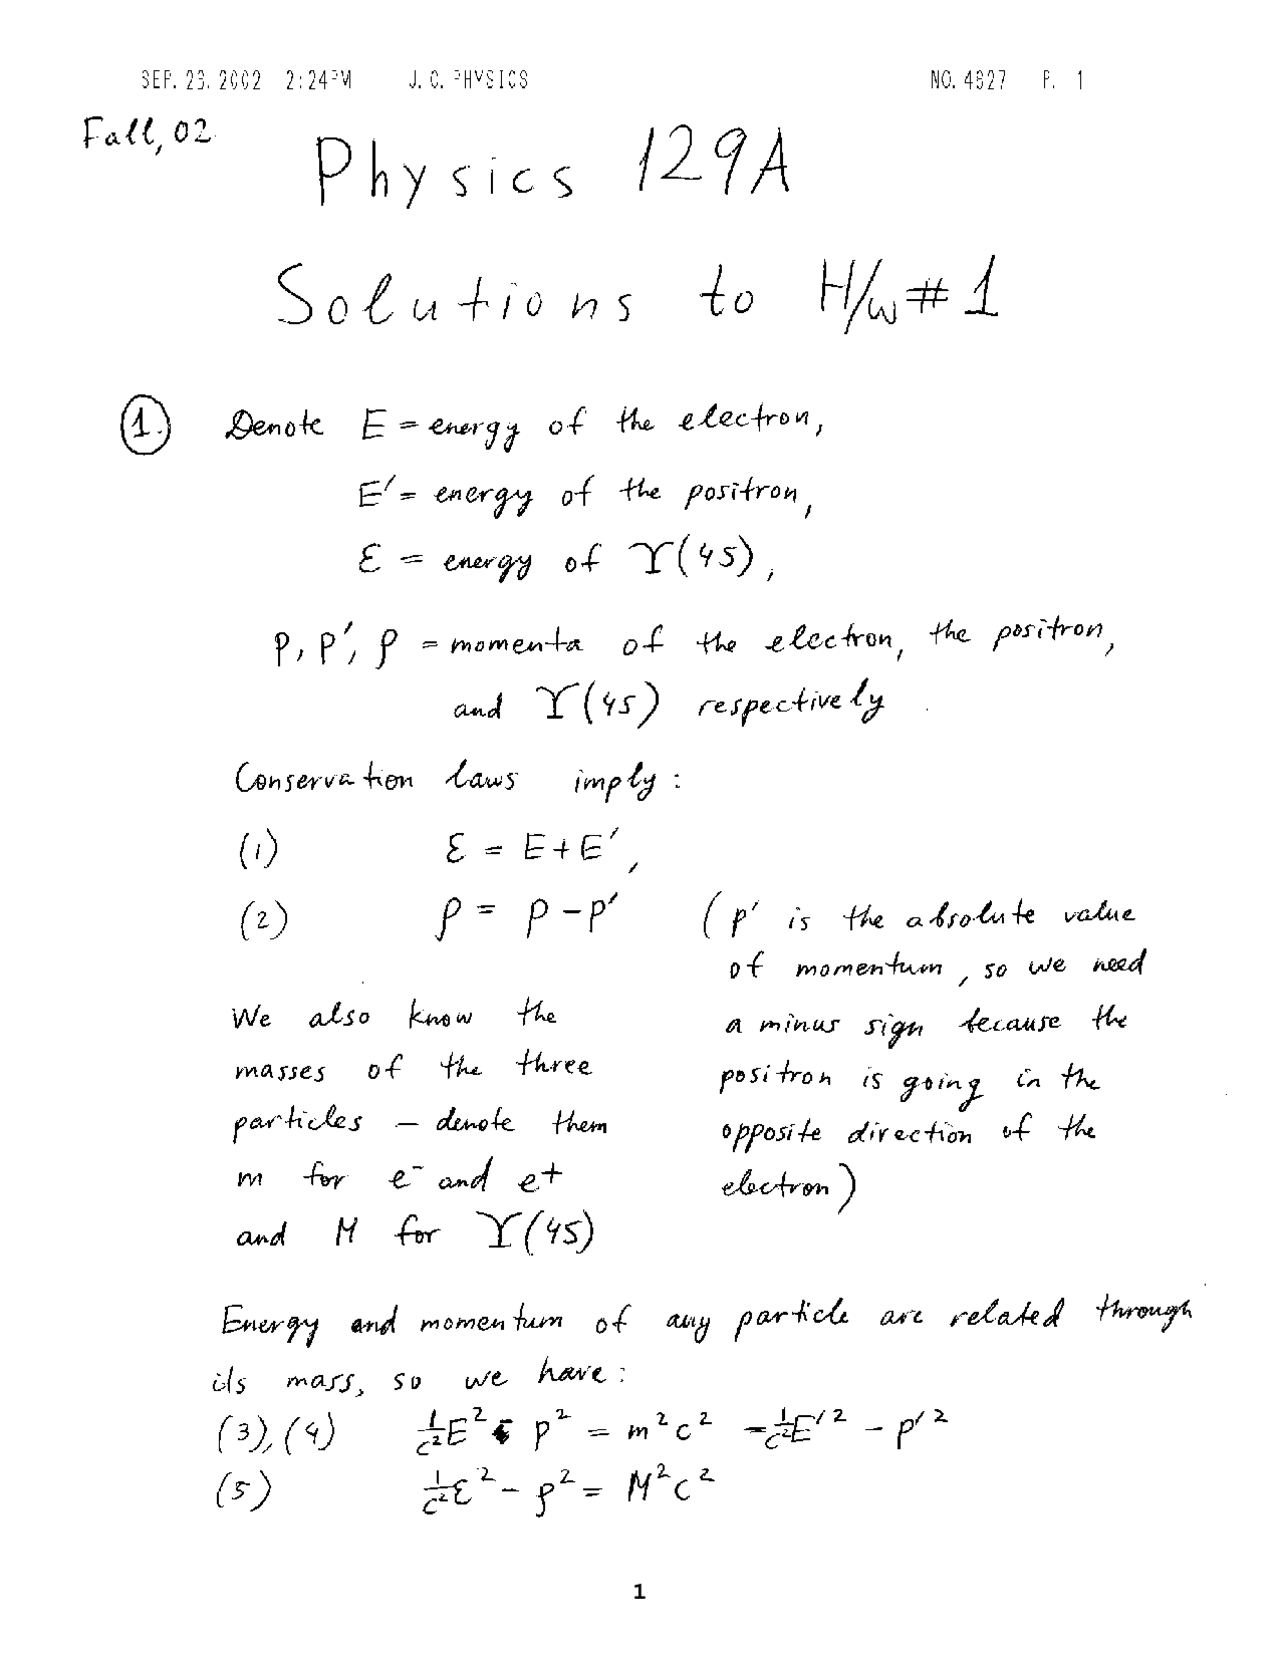 SEP. 23. 2002 2:24PM J. C. PHYSICS NO. 4827 P. 1
Fall, 02
Physics 129A
Solutions to H/w #1
1. Denote E = energy of the electron,
E′ = energy of the positron,
ℰ = energy of ϒ(4S),
p, p′, ρ = momenta of the electron, the positron,
and ϒ(4S) respectively.
Conservation laws imply:
(1) ℰ = E + E′,
(2) ρ = p − p′
(p′ is the absolute value
of momentum, so we need
a minus sign because the
positron is going in the
opposite direction of the
electron)
We also know the
masses of the three
particles — denote them
m for e⁻ and e⁺
and M for ϒ(4S)
Energy and momentum of any particle are related through
its mass, so we have:
(3), (4) 1/c² E² - p² = m²c² = 1/c² E′² − p′²
(5) 1/c² ℰ² − ρ² = M²c²
1